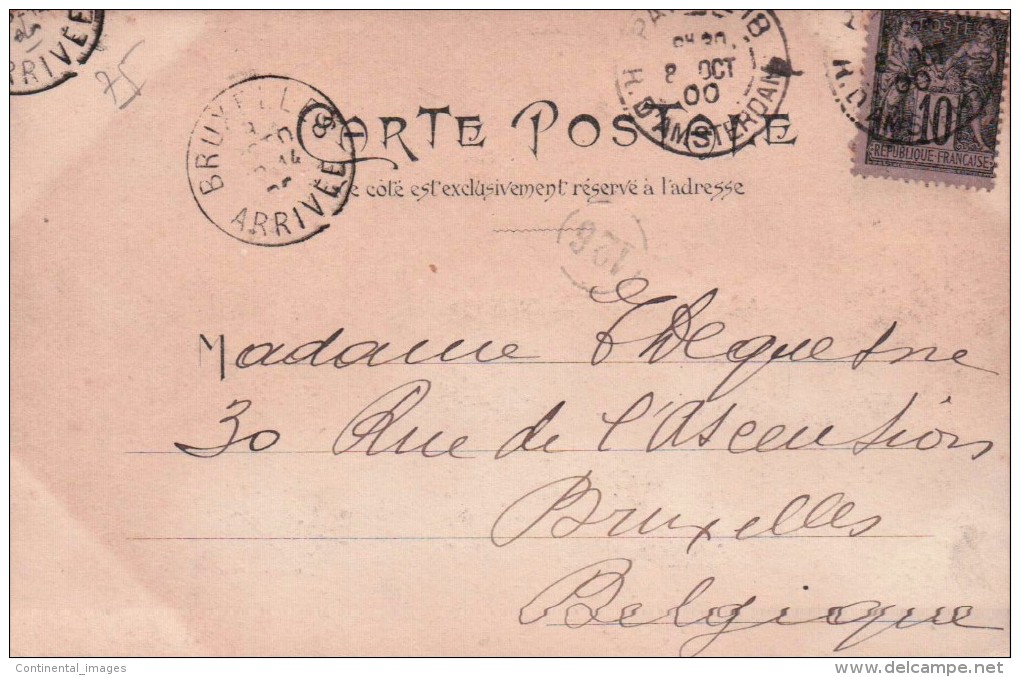 ARRIVÉE
25
BRUXELLES
ARRIVÉE
PARIS 18
8 OCT
00
R. D'AMSTERDAM
OCT
00
R. D'AMS
POSTE
10
RÉPUBLIQUE FRANÇAISE
CARTE POSTALE
Ce côté est exclusivement réservé à l'adresse
126
Madame Th Dequesne
30 Rue de l'Ascension
Bruxelles
Belgique
Continental_images
delcampe.net